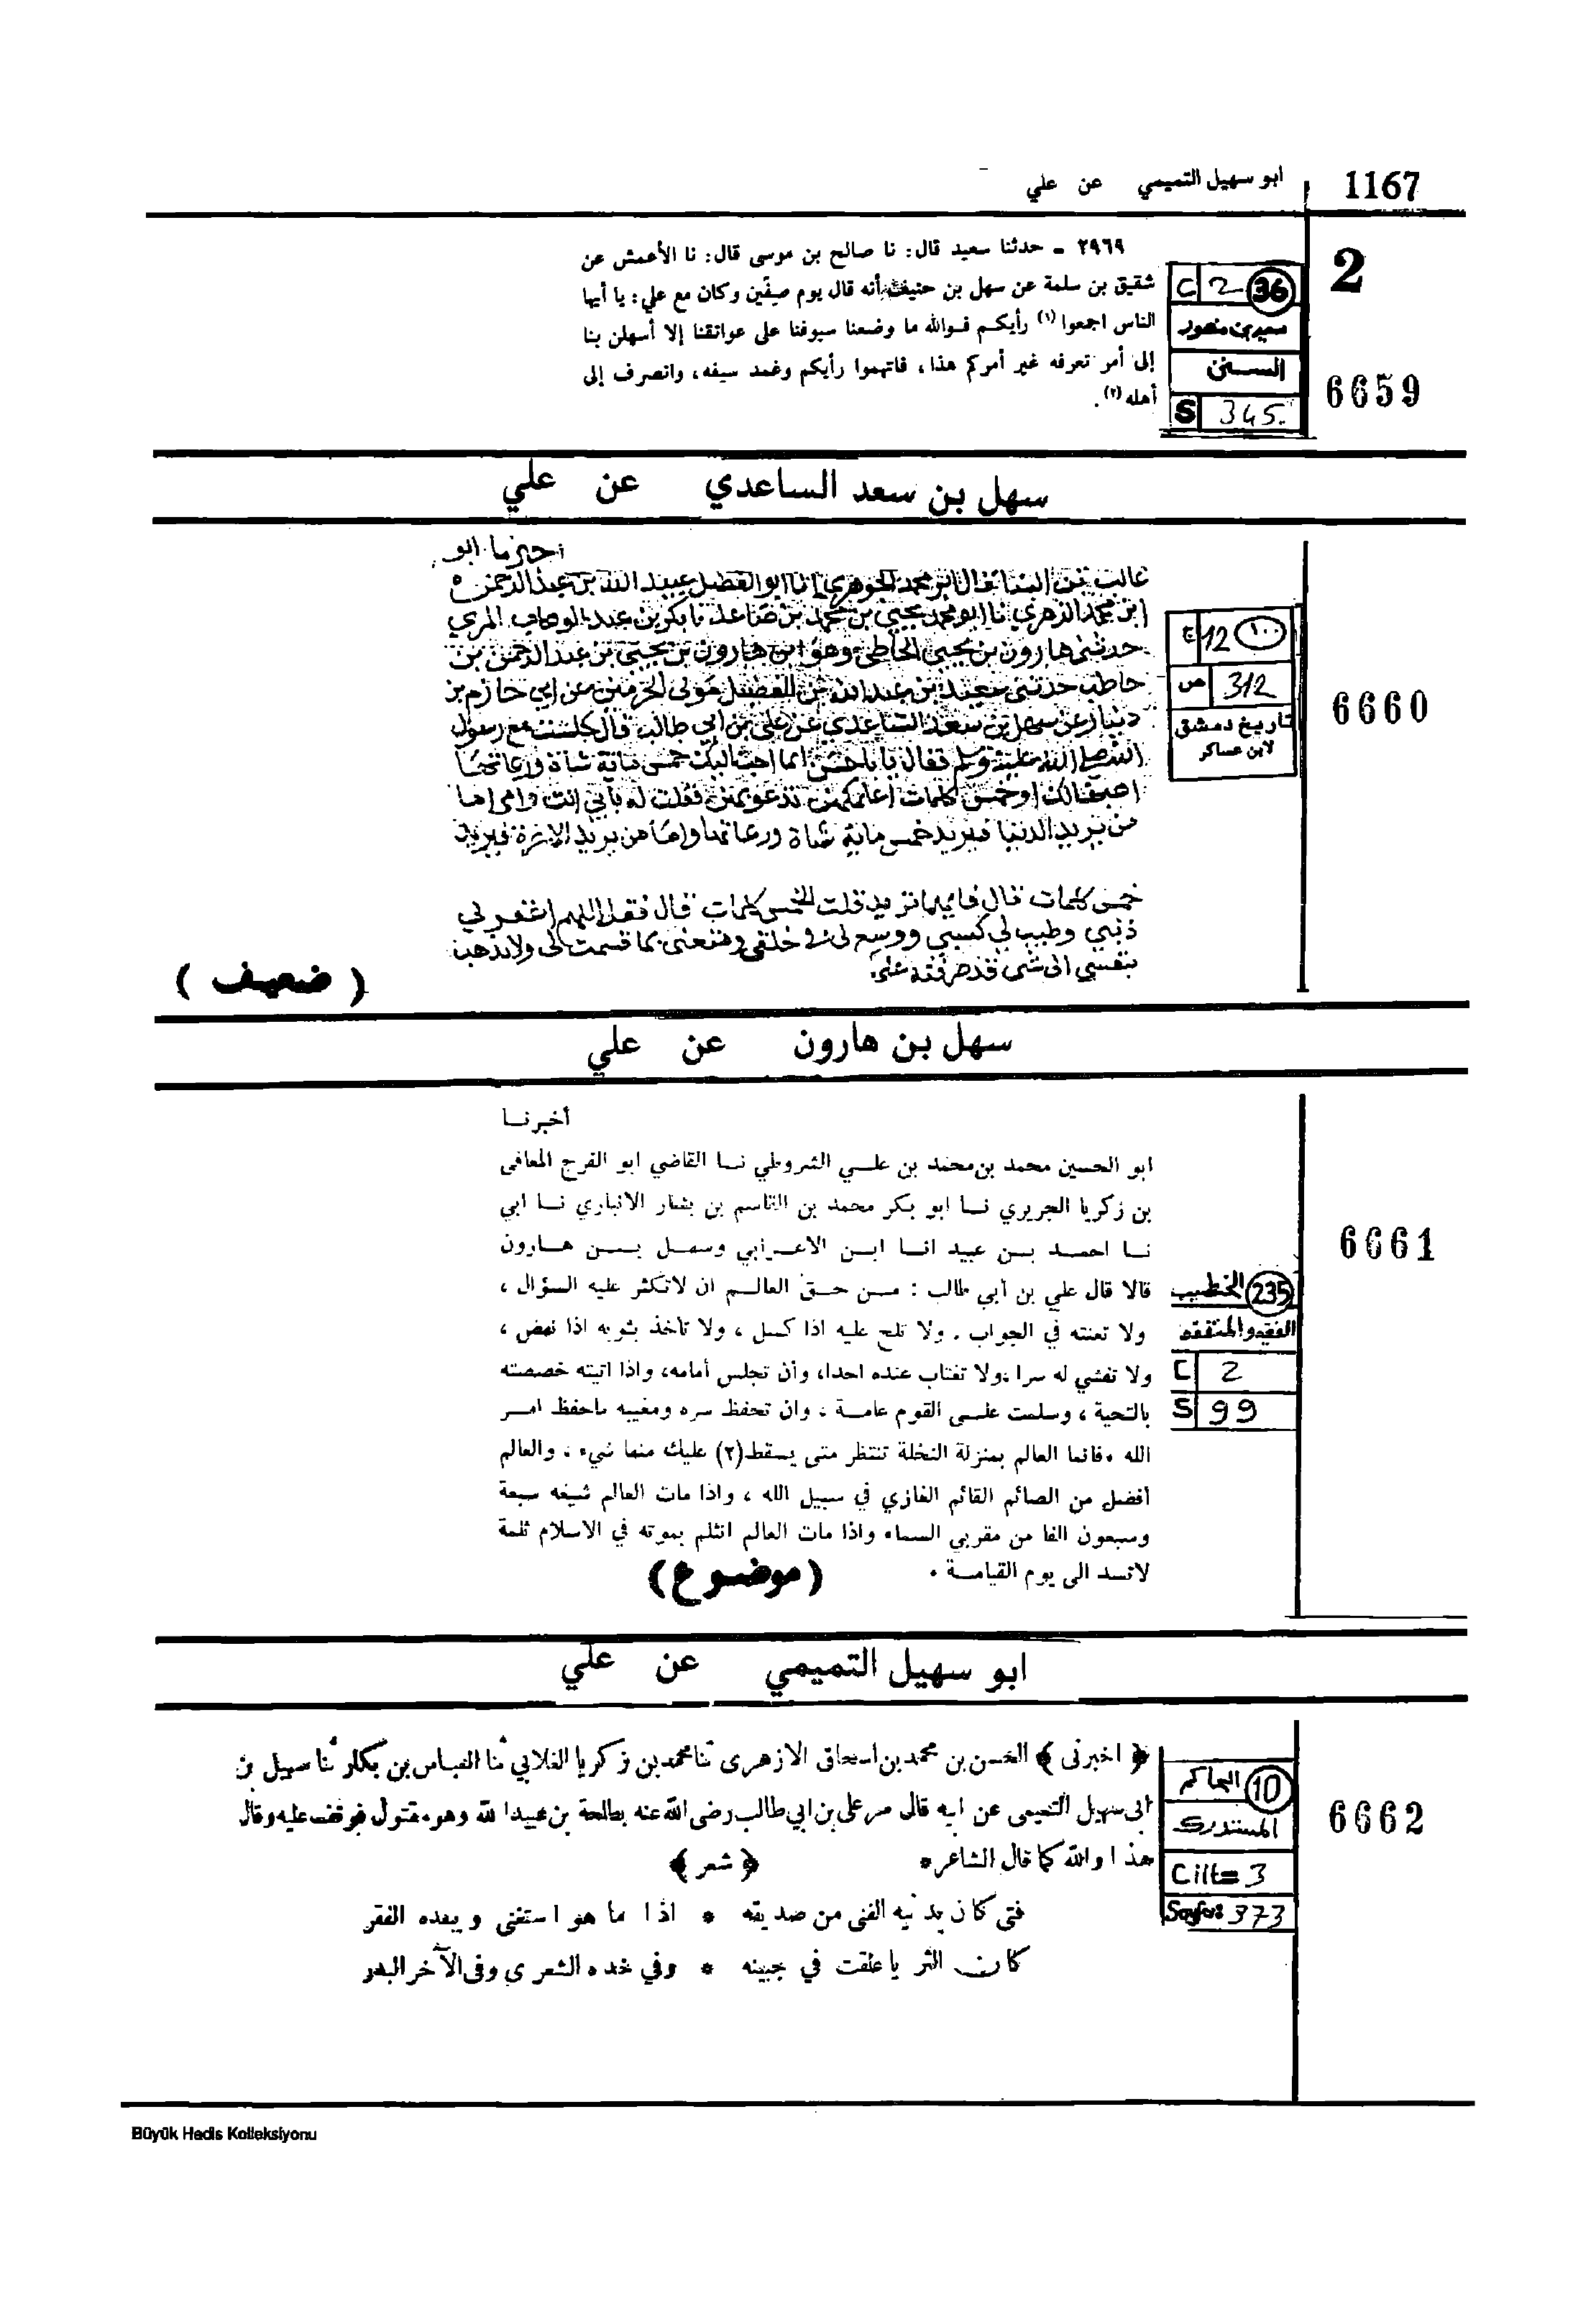 1167
ابو سهيل التميمي عن علي
2
٢٩٦٩ ـ حدثنا سعيد قال: نا صالح بن موسى قال: نا الأعمش عن
شقيق بن سلمة عن سهل بن حنيف أنه قال يوم صفّين وكان مع علي: يا أيها
الناس اجمعوا (١) رأيكم فوالله ما وضعنا سيوفنا على عواتقنا إلا أسهلن بنا
إلى أمر تعرفه غير أمركم هذا، فاتهموا رأيكم وغمد سيفه، وانصرف إلى
أهله (٢).
C 2 36
سعيد بن منصور
السنن
S 345.
6659
سهل بن سعد الساعدي عن علي
اخبرنا ابو
غالب بن البنا قال انا ابو محمد الجوهري انا ابو الفضل عبيد الله بن عبد الرحمن
ابن محمد الزهري نا ابو محمد يحيى بن محمد بن صاعد نا بكر بن عبد الوهاب المري
حدثني هارون بن يحيى الحاطي وهو ابن هارون بن يحيى بن عبد الرحمن بن
حاطب حدثني سعيد بن عبد الله بن الفضيل مولى الحرمين عن ابي حازم بن
دينار عن سهل بن سعد الساعدي عن علي بن ابي طالب قال جلست مع رسول
الله صلى الله عليه وسلم فقال يا باحسن ايما احب اليك خمس مائة شاة ورعاتها
اهبها لك او خمس كلمات اعلمكهن تدعو بهن فقلت له بابي انت وامي اما
من يريد الدنيا فيريد خمس ماية شاة ورعاتها واما من يريد الاخرة فيريد
خمس كلمات قال فايهما تريد قلت الخمس كلمات قال فقل اللهم اغفر لي
ذنبي وطيب لي كسبي ووسع لي في خلقي ومتعني بما قسمت لي ولا تذهب
بنفسي الى شي قد صرفته عني
( ضعيف )
C 12 ١٠٠
ص 312
تاريخ دمشق
لابن عساكر
6660
سهل بن هارون عن علي
أخبرنا
ابو الحسين محمد بن محمد بن علي الشروطي نا القاضي ابو الفرج المعافى
بن زكريا الجريري نا ابو بكر محمد بن القاسم بن بشار الانباري نا ابي
نا احمد بن عبيد انا ابن الاعرابي وسهل بن هارون
قالا قال علي بن أبي طالب : من حق العالم ان لاتكثر عليه السؤال ،
ولا تعنته في الجواب . ولا تلح عليه اذا كسل ، ولا تأخذ بثوبه اذا نهض ،
ولا تفشي له سرا ،ولا تغتاب عنده احدا، وأن تجلس أمامه، واذا اتيته خصصته
بالتحية ، وسلمت على القوم عامة ، وان تحفظ سره ومغيبه ماحفظ امر
الله .فانما العالم بمنزلة النخلة تنتظر متى يسقط(٢) عليك منها شيء ، والعالم
أفضل من الصائم القائم الغازي في سبيل الله ، واذا مات العالم شيعه سبعة
وسبعون الفا من مقربي السماء واذا مات العالم انثلم بموته في الاسلام ثلمة
لاتسد الى يوم القيامة .
(موضوع)
الخطيب 235
الفقيه والمتفقه
C 2
S 99
6661
ابو سهيل التميمي عن علي
﴿ اخبرنى ﴾ الحسن بن محمد بن اسحاق الازهرى ثنا محمد بن زكريا الغلابي ثنا العباس بن بكار ثنا سهيل بن
ابى سهيل التميمى عن ابيه قال مر على بن ابي طالب رضى الله عنه بطلحة بن عبيدالله وهو مقتول فوقف عليه وقال
هذا والله كما قال الشاعر *
﴿ شعر ﴾
فتى كان يدنيه الغنى من صديقه * اذا ما هو استغنى ويبعده الفقر
كان الثريا علقت في جبينه * وفي خده الشعرى وفى الآخر البدر
الحاكم 10
المستدرك
Cilt= 3
Sayfa: 373
6662
Büyük Hadis Kolleksiyonu